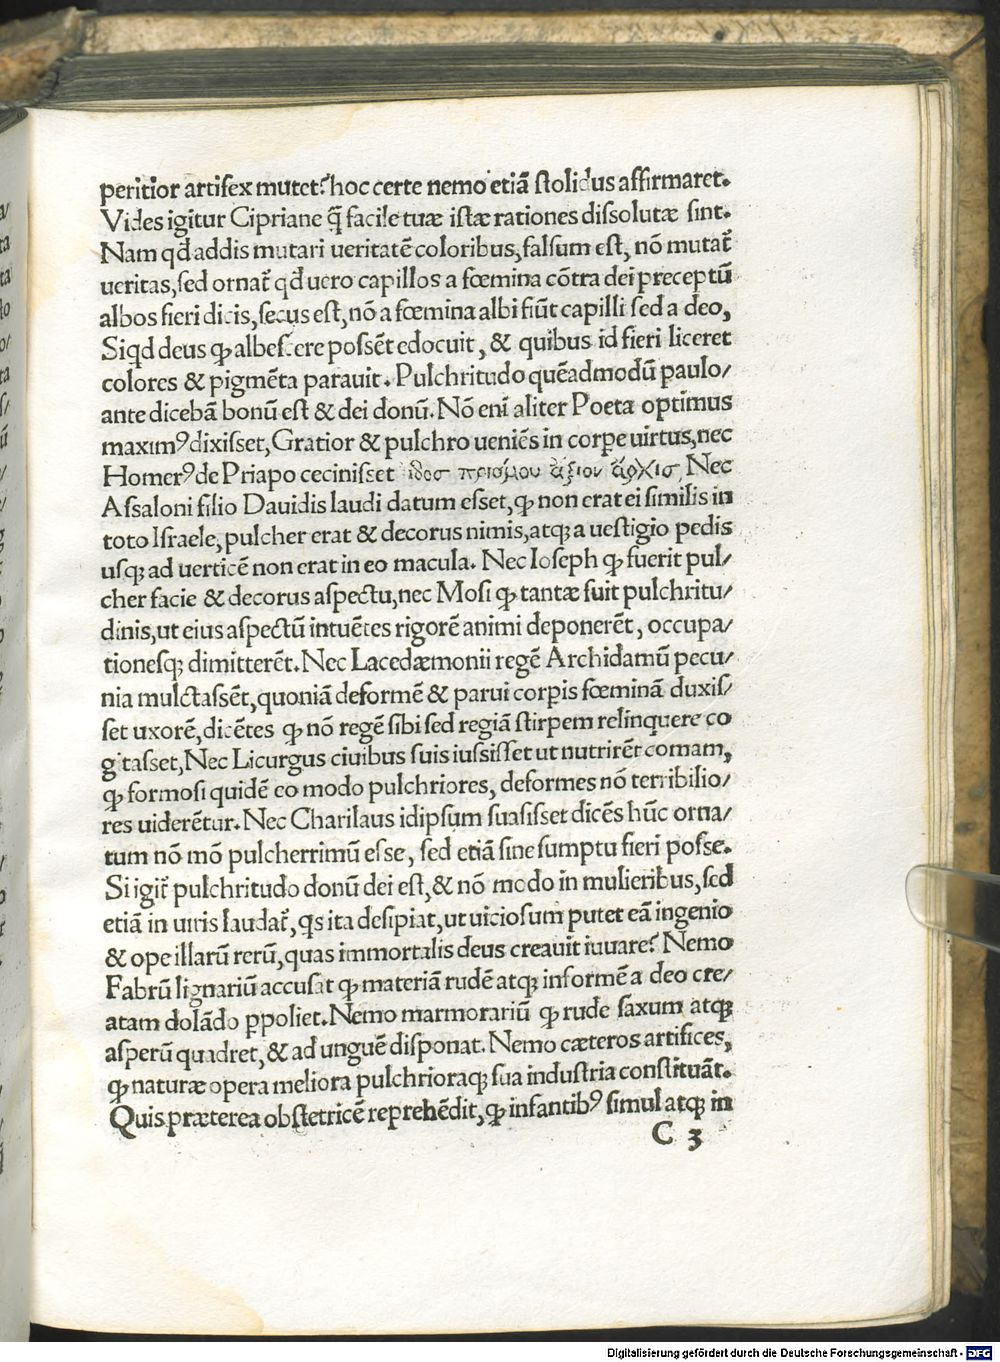 peritior artifex mutet? hoc certe nemo etiā ſtolidus affirmaret.
Vides igitur Cipriane q̄ facile tuæ iſtæ rationes diſſolutæ ſint.
Nam qd addis mutari ueritatē coloribus, falſum eſt, nō mutat̄
ueritas, ſed ornat̄ qd uero capillos a fœmina cōtra dei preceptū
albos fieri dicis, ſecus eſt, nō a fœmina albi fiūt capilli ſed a deo,
Siqd deus ꝙ albeſcere poſſēt edocuit, & quibus id fieri liceret
colores & pigmēta parauit. Pulchritudo quēadmodū paulo/
ante dicebā bonū eſt & dei donū. Nō eni aliter Poeta optimus
maximꝰ dixiſſet, Gratior & pulchro ueniēs in corpe uirtus, nec
Homerꝰ de Priapo ceciniſſet ιδοσ πριαμου αξιον αρχισ, Nec
Aſſaloni filio Dauidis laudi datum eſſet, ꝙ non erat ei ſimilis in
toto Iſraele, pulcher erat & decorus nimis, atqꝫ a ueſtigio pedis
uſqꝫ ad uerticē non erat in eo macula. Nec Ioſeph ꝙ fuerit pul/
cher facie & decorus aſpectu, nec Moſi ꝙ tantæ fuit pulchritu/
dinis, ut eius aſpectū intuētes rigorē animi deponerēt, occupa/
tioneſqꝫ dimitterēt. Nec Lacedæmonii regē Archidamū pecu/
nia mulctaſſēt, quoniā deformē & parui corpis fœminā duxiſ/
ſet uxorē, dicētes ꝙ nō regē ſibi ſed regiā ſtirpem relinquere co
gitaſſet, Nec Licurgus ciuibus ſuis iuſſiſſet ut nutrirēt comam,
ꝙ formoſi quidē eo modo pulchriores, deformes nō terribilio/
res uiderētur. Nec Charilaus idipſum ſuaſiſſet dicēs hūc orna/
tum nō mō pulcherrimū eſſe, ſed etiā ſine ſumptu fieri poſſe.
Si igit̄ pulchritudo donū dei eſt, & nō modo in mulieribus, ſed
etiā in uiris laudat̄, qs ita deſipiat, ut uicioſum putet eā ingenio
& ope illarū rerū, quas immortalis deus creauit iuuare? Nemo
Fabrū lignariū accuſat ꝙ materiā rudē atqꝫ informē a deo cre/
atam dolādo ꝑpoliet. Nemo marmorariū ꝙ rude ſaxum atqꝫ
aſperū quadret, & ad unguē diſponat. Nemo cæteros artifices,
ꝙ naturæ opera meliora pulchrioraqꝫ ſua induſtria conſtituāt.
Quis præterea obſtetricē reprehēdit, ꝙ infantibꝰ ſimul atqꝫ in
C 3
Digitalisierung gefördert durch die Deutsche Forschungsgemeinschaft - DFG